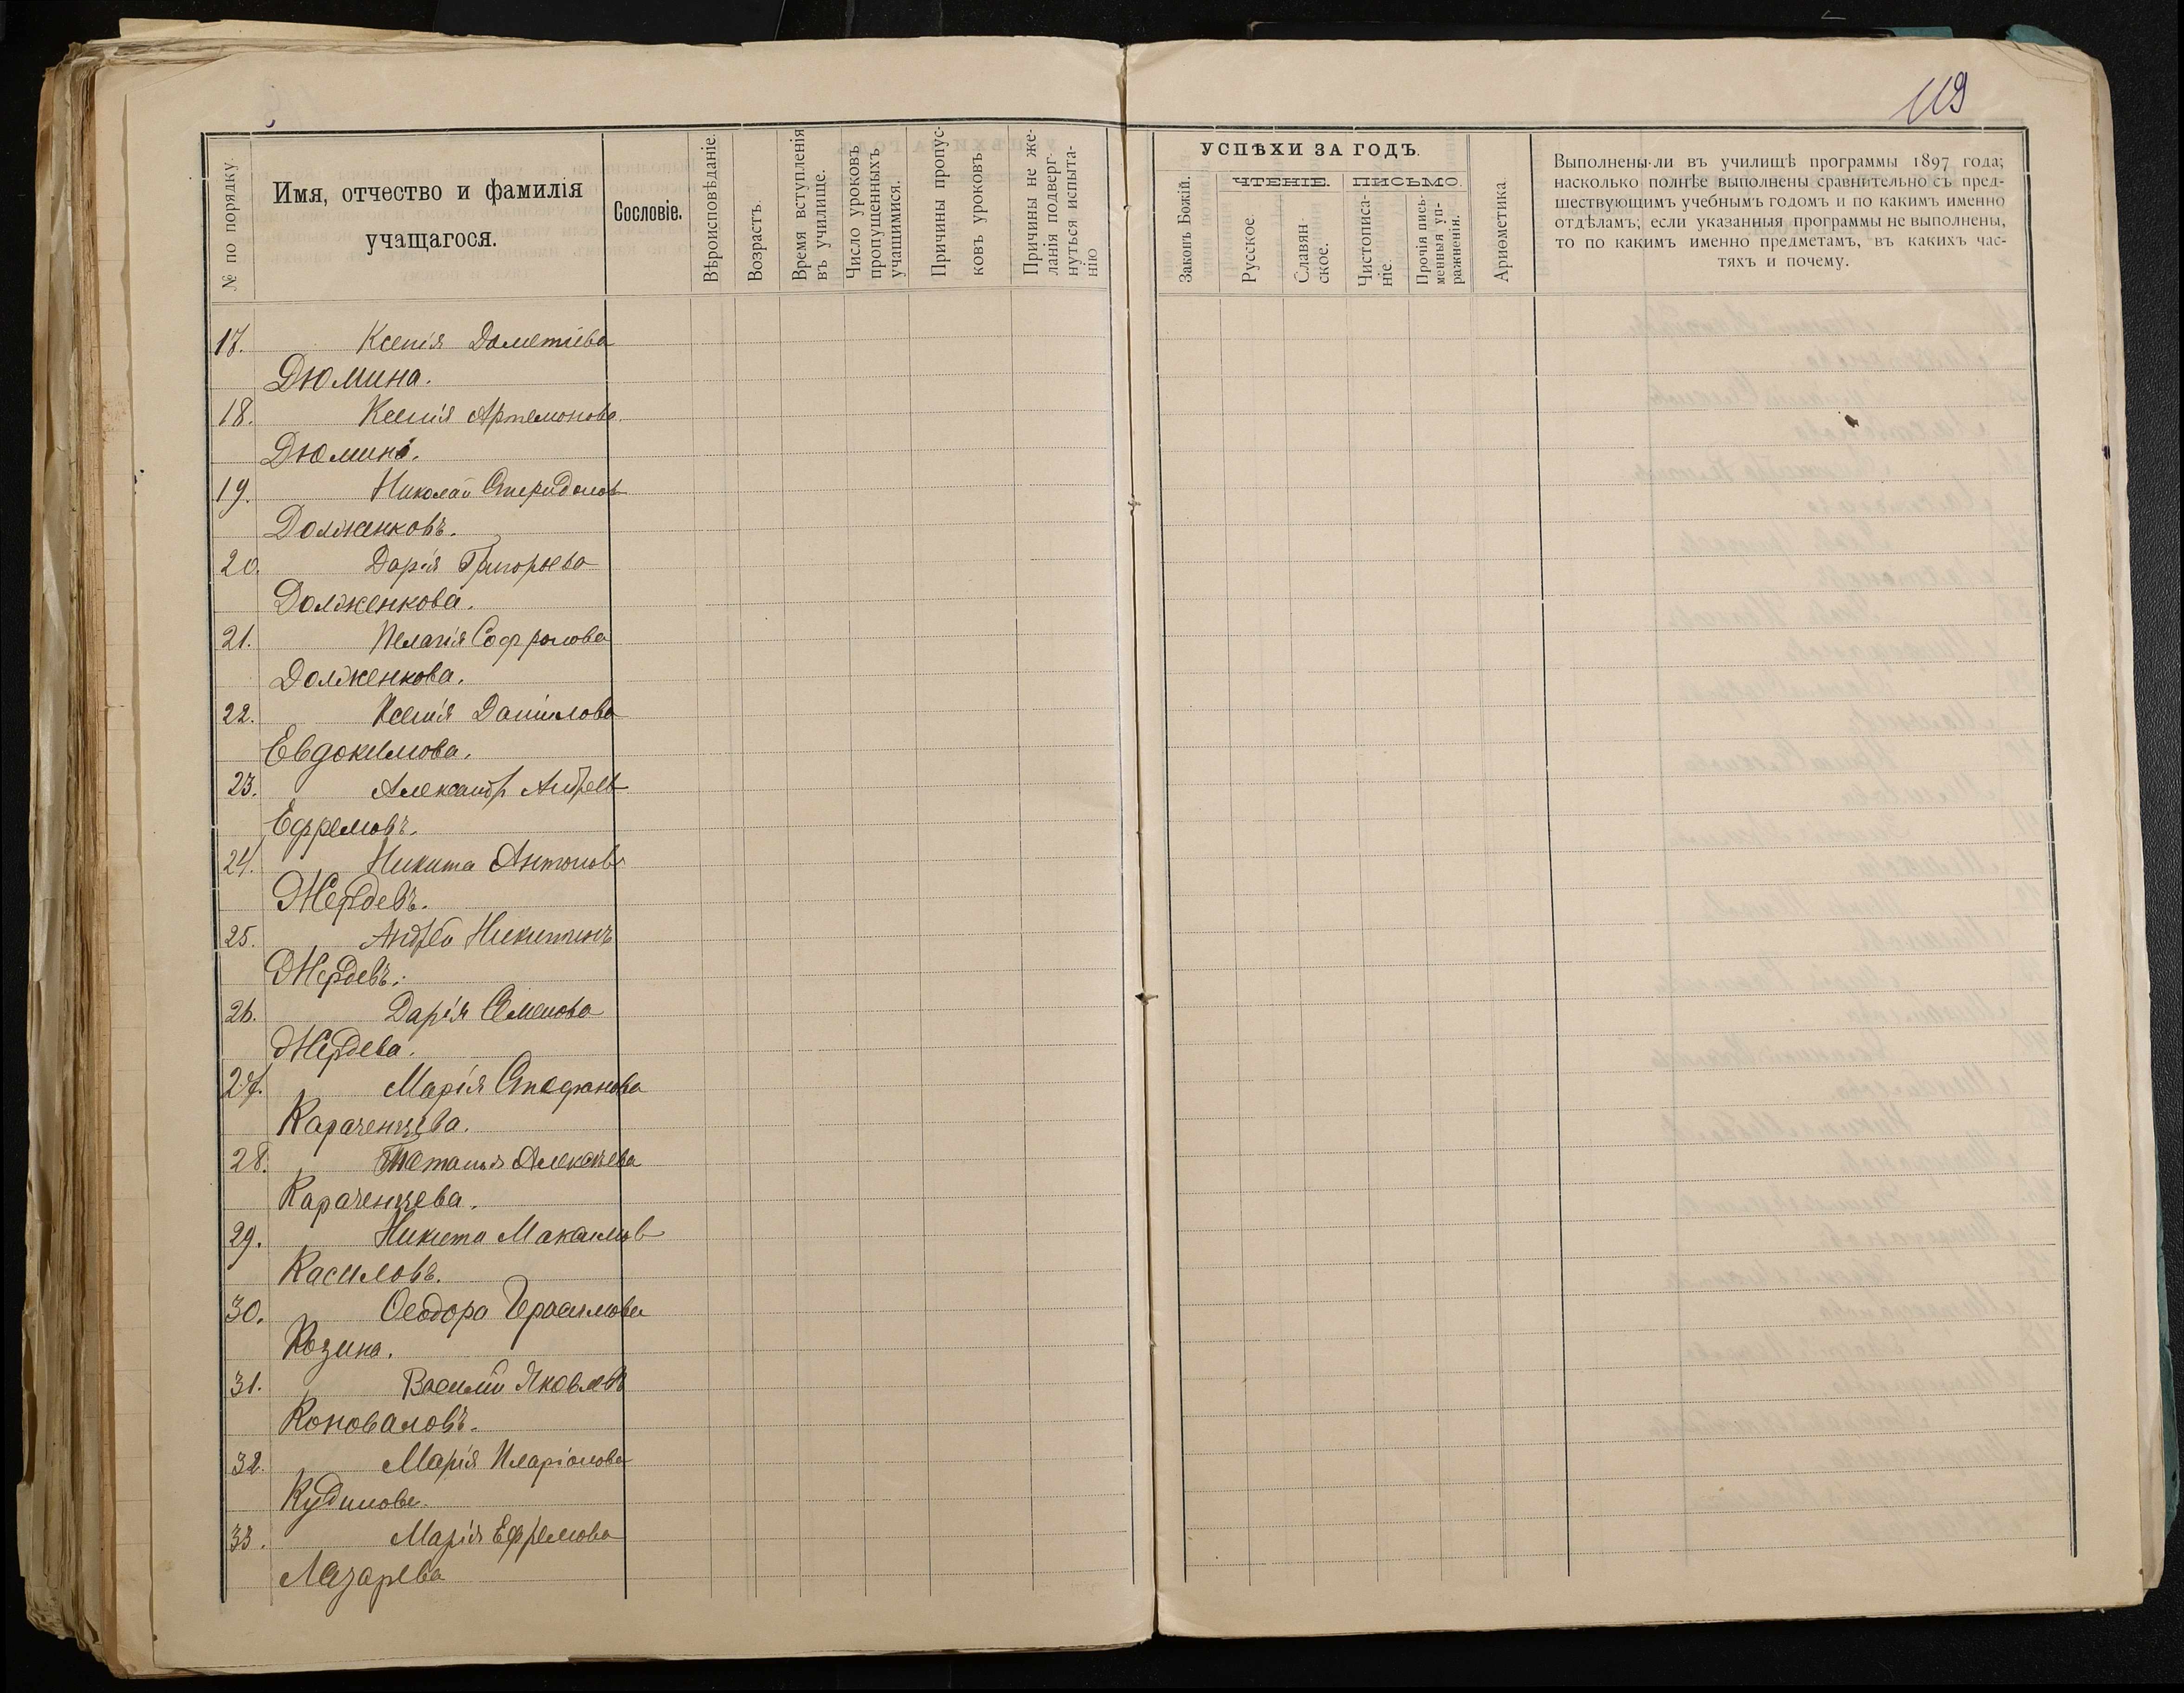 119
№ по порядку.
Имя, отчество и фамилія
учащагося.
Сословіе.
Вѣроисповѣданіе.
Возрастъ.
Время вступленія
въ училище.
Число уроковъ
пропущенныхъ
учащимися.
Причины пропус-
ковъ уроковъ
Причины не же-
ланія подверг-
нуться испыта-
нію
УСПѢХИ ЗА ГОДЪ.
Законъ Божій.
ЧТЕНІЕ.
Русское.
Славян-
ское.
ПИСЬМО.
Чистописа-
ніе.
Прочія пись-
менныя уп-
ражненія.
Ариѳметика
Выполнены-ли въ училищѣ программы 1897 года;
насколько полнѣе выполнены сравнительно съ пред-
шествующимъ учебнымъ годомъ и по какимъ именно
отдѣламъ; если указанныя программы не выполнены,
то по какимъ именно предметамъ, въ какихъ час-
тяхъ и почему.
17. Ксенія Дометіева
Дюмина.
18. Ксенія Артемонова
Дюмина.
19. Николай Спиридонов
Долженковъ.
20. Дарія Григорьева
Долженкова.
21. Пелагія Софронова
Долженкова.
22. Ксенія Данилова
Евдокимова.
23. Александр Андреев
Ефремовъ.
24. Никита Антонов
Жердевъ.
25. Андрей Никитинъ
Жердевъ.
26. Дарія Семенова
Жердева.
27. Марія Стефанова
Караченцева.
28. Татанья Алексѣева
Караченцева.
29. Никита Максимов
Касиловъ.
30. Ѳеодора Герасимова
Козина.
31. Василій Яковлевъ
Коноваловъ.
32. Марія Иларіонова
Кудинова.
33. Марія Ефремова
Лазарева